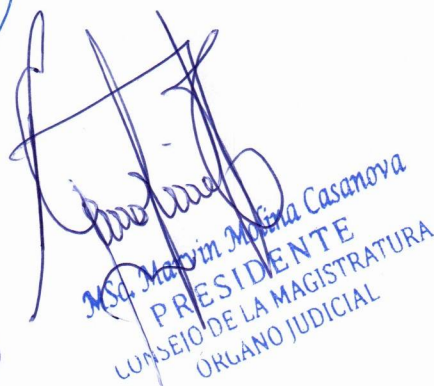 MSc. Marvin Molina Casanova
PRESIDENTE
CONSEJO DE LA MAGISTRATURA
ÓRGANO JUDICIAL